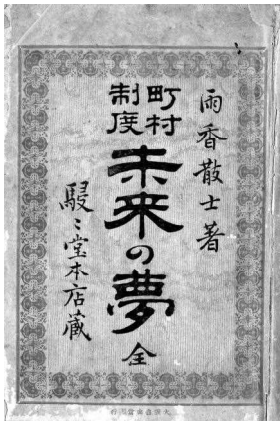 雨香散士著
町村
制度
未来の夢
全
駸々堂本店蔵